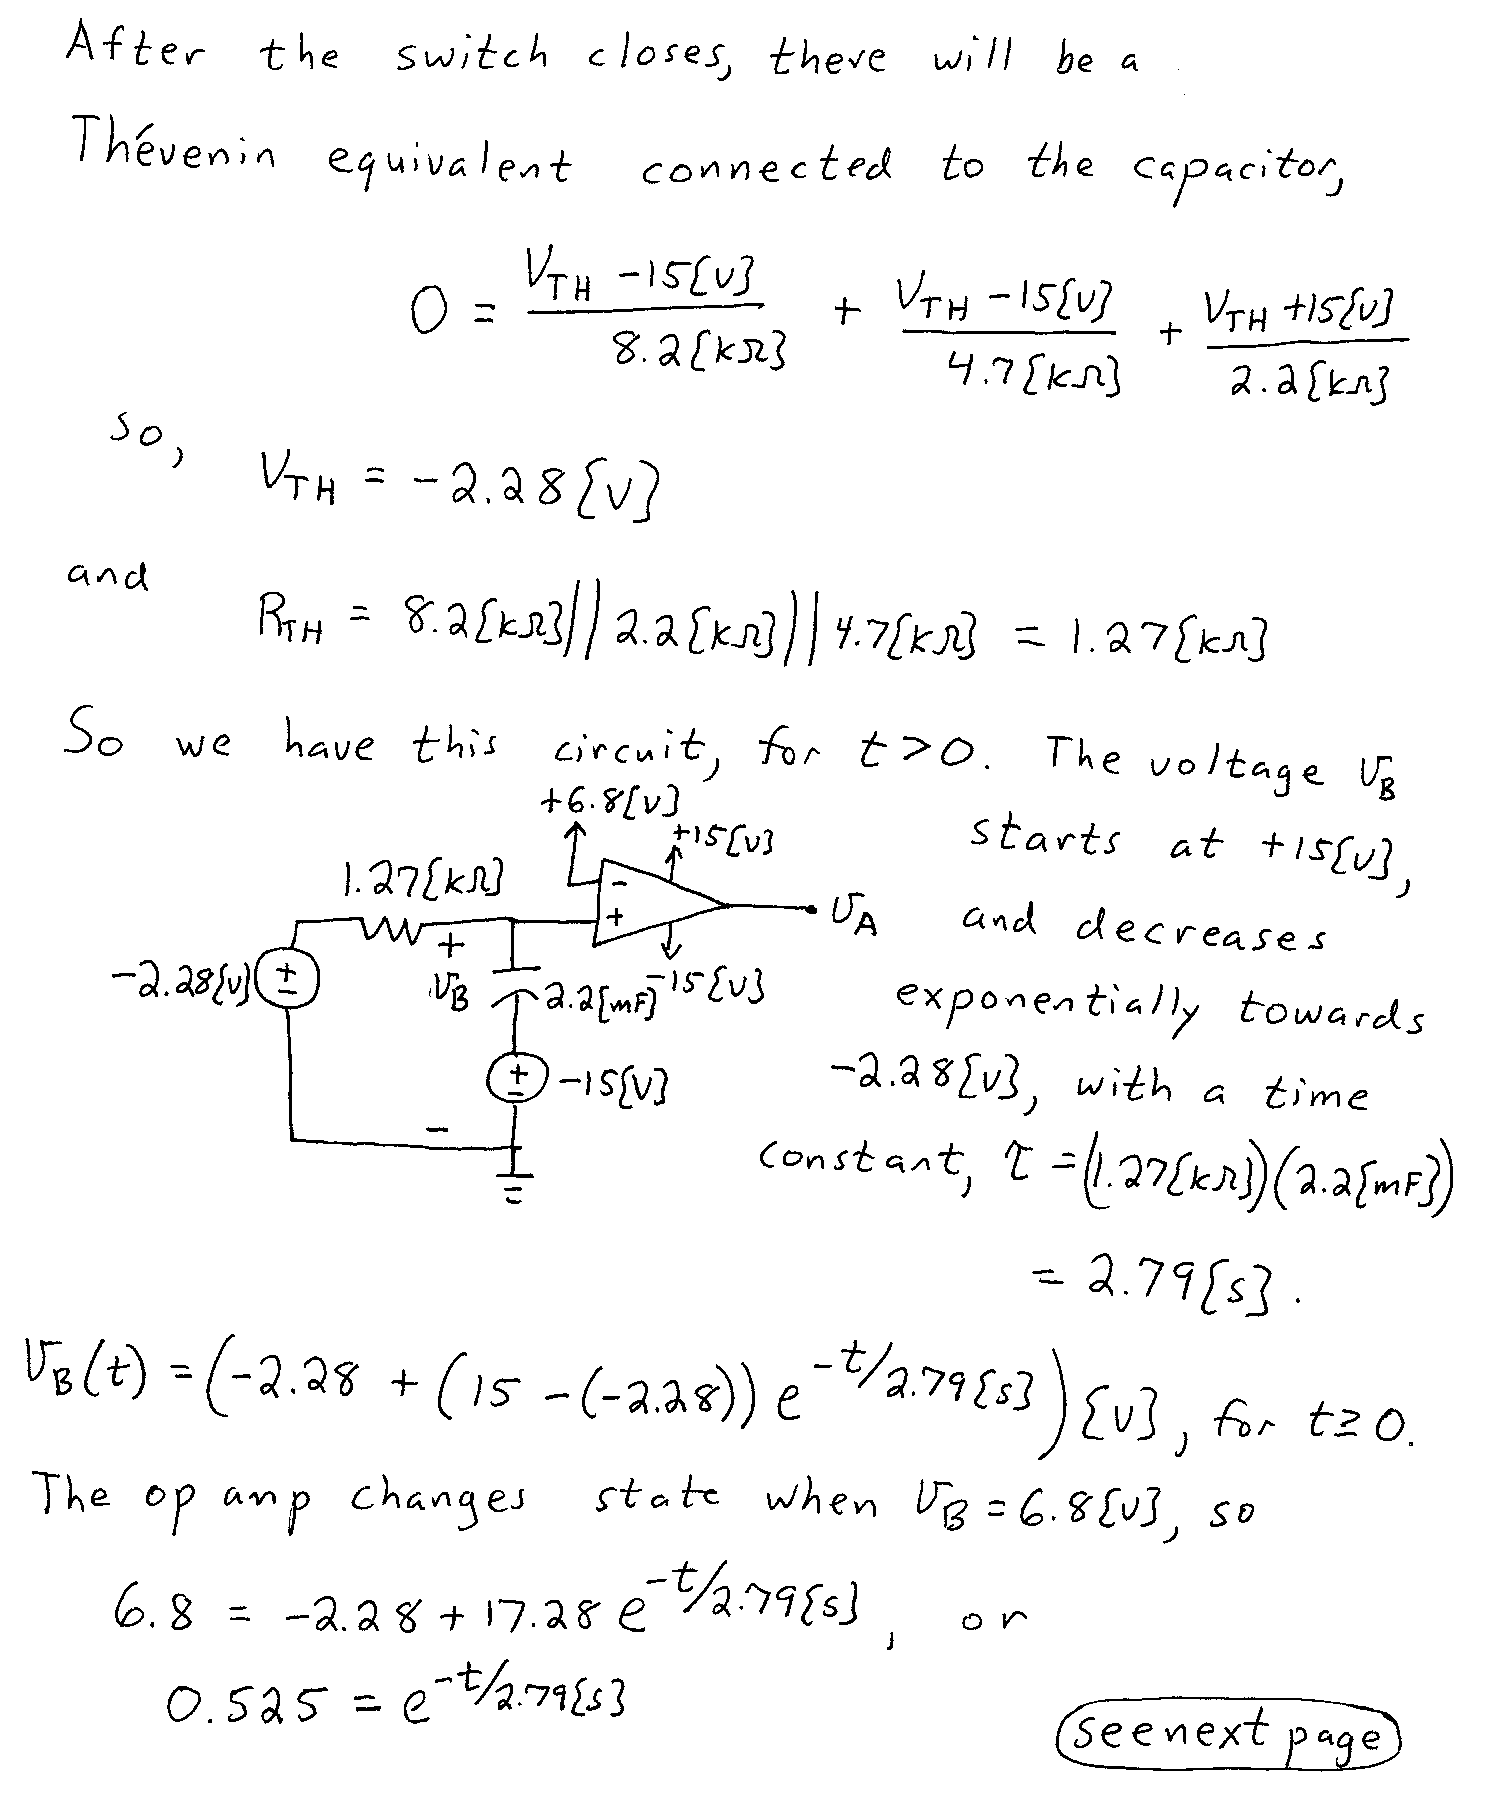 After the switch closes, there will be a
Thévenin equivalent connected to the capacitor,
0 = (V_TH - 15[V])/(8.2[kΩ]) + (V_TH - 15[V])/(4.7[kΩ]) + (V_TH + 15[V])/(2.2[kΩ])
so, V_TH = -2.28[V]
and R_TH = 8.2[kΩ] || 2.2[kΩ] || 4.7[kΩ] = 1.27[kΩ]
So we have this circuit, for t>0. The voltage v_B
starts at +15[V],
and decreases
exponentially towards
-2.28[V], with a time
constant, τ = (1.27[kΩ])(2.2[mF])
= 2.79[s].
+6.8[V]
+15[V]
1.27[kΩ]
-
+
v_A
-2.28[V]
+
-
+
v_B
-
2.2[mF]
-15[V]
+
-
-15[V]
v_B(t) = (-2.28 + (15 - (-2.28)) e^(-t/2.79[s]))[V], for t≥0.
The op amp changes state when v_B = 6.8[V], so
6.8 = -2.28 + 17.28 e^(-t/2.79[s]), or
0.525 = e^(-t/2.79[s])
see next page